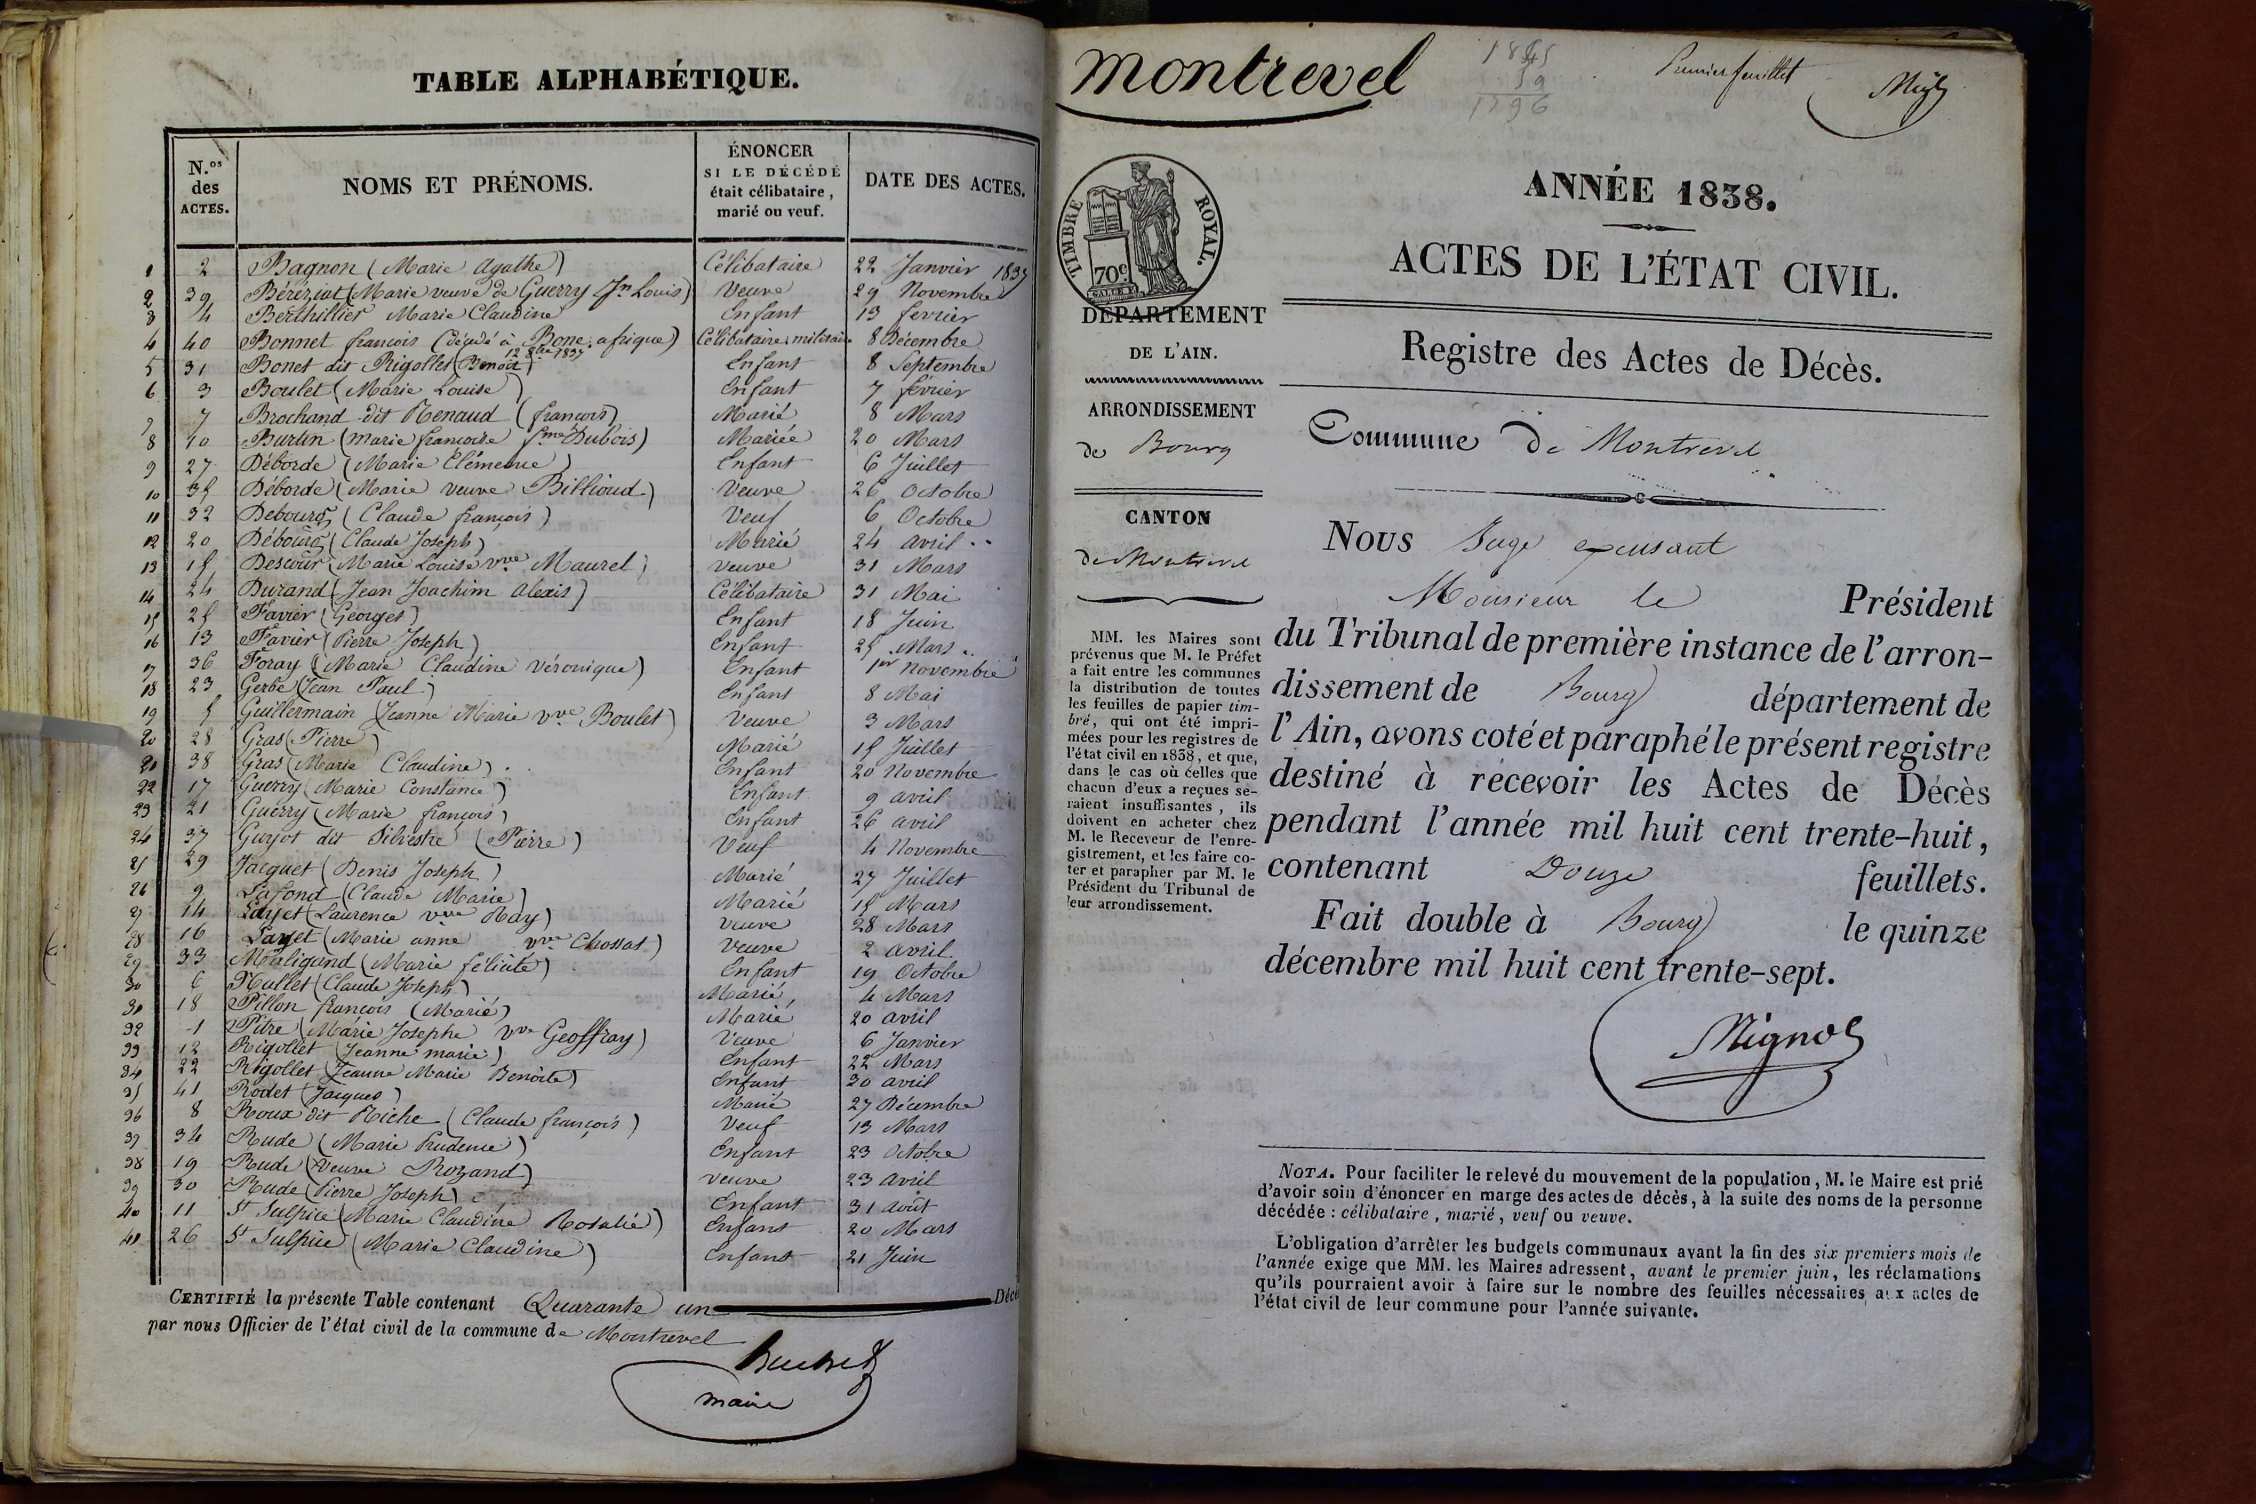 TABLE ALPHABÉTIQUE.
N.os des ACTES.
NOMS ET PRÉNOMS.
ÉNONCER SI LE DÉCÉDÉ était célibataire, marié ou veuf.
DATE DES ACTES.
1 2 Bagnon (Marie Agathe) Célibataire 22 Janvier 1837
2 39 Béréziat (Marie veuve de Guerry Jn Louis) Veuve 29 Novembre
3 4 Berthillier Marie Claudine Enfant 13 février
4 40 Bonnet françois (décédé à Bone afrique) Célibataire militaire 8 Décembre
12 8bre 1837
5 31 Bonet dit Rigollet (Benoit) Enfant 8 Septembre
6 3 Boulet (Marie Louise) Enfant 7 février
7 7 Brochand dit Renaud (françois) Marié 8 Mars
8 10 Burtin (marie françoise fme Dubois) Mariée 20 Mars
9 27 Déborde (Marie Clémence) Enfant 6 Juillet
10 35 Déborde (Marie veuve Billioud) Veuve 26 Octobre
11 32 Debourg (Claude françois) Veuf 6 Octobre
12 20 Débourg (Claude Joseph) Marié 24 avril
13 15 Descour (Marie Louise vve Maurel) veuve 31 Mars
14 24 Durand (Jean Joachim Alexis) Célibataire 31 Mai
15 25 Favier (Georges) Enfant 18 Juin
16 13 Favier (Pierre Joseph) Enfant 25 Mars
17 36 Foray (Marie Claudine Véronique) Enfant 1er Novembre
18 23 Gerbe (Jean Paul) Enfant 8 Mai
19 5 Guillermain (Jeanne Marie vve Boulet) Veuve 3 Mars
20 28 Gras (Pierre) Marié 15 Juillet
21 38 Gras (Marie Claudine) Enfant 20 Novembre
22 17 Guerry (Marie Constance) Enfant 9 avril
23 21 Guerry (Marie françois) Enfant 26 avril
24 37 Guyot dit Silvestre (Pierre) Veuf 4 Novembre
25 29 Jacquet (Denis Joseph) Marié 27 Juillet
26 9 Lafond (Claude Marie) Marié 15 Mars
27 14 Layet (Laurence vve Ray) veuve 28 Mars
28 16 Layet (Marie anne vve Chossat) Veuve 2 avril
29 33 Maligand (Marie félicité) Enfant 19 Octobre
30 6 Nallet (Claude Joseph) Marié 4 Mars
31 18 Pillon françois (Marié) Marié 20 avril
32 1 Pitre (Marie Josephe vve Geoffray) Veuve 6 Janvier
33 12 Rigollet (Jeanne marie) Enfant 22 Mars
34 22 Rigollet (Jeanne Marie Benoite) Enfant 30 avril
35 41 Rodet (Jacques) Marié 27 Décembre
36 8 Roux dit Riche (Claude françois) Veuf 13 Mars
37 34 Rude (Marie Prudence) Enfant 23 Octobre
38 19 Rude (Veuve Rozand) veuve 23 avril
39 30 Rude (Pierre Joseph) Enfant 31 août
40 11 St Sulpice (Marie Claudine Rosalie) Enfant 20 Mars
41 26 St Sulpice (Marie Claudine) Enfant 21 Juin
CERTIFIÉ la présente Table contenant Quarante un Décè
par nous Officier de l'état civil de la commune de Montrevel
maire
montrevel
Premier feuillet
ANNÉE 1838.
ACTES DE L'ÉTAT CIVIL.
Registre des Actes de Décès.
Commune de Montrevel
TIMBRE ROYAL.
70c
DÉPARTEMENT
DE L'AIN.
ARRONDISSEMENT
de Bourg
CANTON
de Montrevel
MM. les Maires sont
prévenus que M. le Préfet
a fait entre les communes
la distribution de toutes
les feuilles de papier tim-
bré, qui ont été impri-
mées pour les registres de
l'état civil en 1838, et que,
dans le cas où celles que
chacun d'eux a reçues se-
raient insuffisantes, ils
doivent en acheter chez
M. le Receveur de l'enre-
gistrement, et les faire co-
ter et parapher par M. le
Président du Tribunal de
leur arrondissement.
Nous Juge
Monsieur le Président
du Tribunal de première instance de l'arron-
dissement de Bourg département de
l'Ain, avons coté et paraphé le présent registre
destiné à recevoir les Actes de Décès
pendant l'année mil huit cent trente-huit,
contenant Douze feuillets.
Fait double à Bourg le quinze
décembre mil huit cent trente-sept.
NOTA. Pour faciliter le relevé du mouvement de la population, M. le Maire est prié
d'avoir soin d'énoncer en marge des actes de décès, à la suite des noms de la personne
décédée : célibataire, marié, veuf ou veuve.
L'obligation d'arrêter les budgets communaux avant la fin des six premiers mois de
l'année exige que MM. les Maires adressent, avant le premier juin, les réclamations
qu'ils pourraient avoir à faire sur le nombre des feuilles nécessaires aux actes de
l'état civil de leur commune pour l'année suivante.